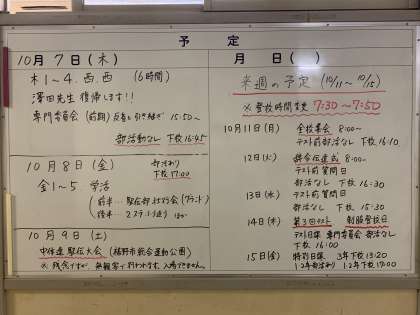 予定
10月7日(木)
木1~4.西西 (6時間)
澤田先生 復帰します!!
専門委員会 (前期) 反省と引き継ぎ 15:50~
部活動なし 下校16:45
10月8日(金) 部活あり
下校17:00
金1~5 学活
前半… 駅伝部壮行会(グランド)
後半…
10月9日(土)
中体連 駅伝大会 (裾野市総合運動公園)
※ 残念ですが、無観客で行われます。入場できません。
月 日( )
来週の予定 (10/11~10/15)
※ 登校時間変更 7:30~7:50
10月11日(月) 全校集会 8:00~
テスト前部活なし 下校16:10
12日(火) 辞令伝達式 8:00~
テスト前質問日
部活なし 下校 16:30
13日(水) テスト前質問日
部活なし 下校 15:30
14日(木) 第3回テスト 制服登校日
テスト日課 専門委員会 部活なし
下校 16:00
15日(金) 特別日課 3年下校13:20
1·2年部活あり 1·2年下校17:00